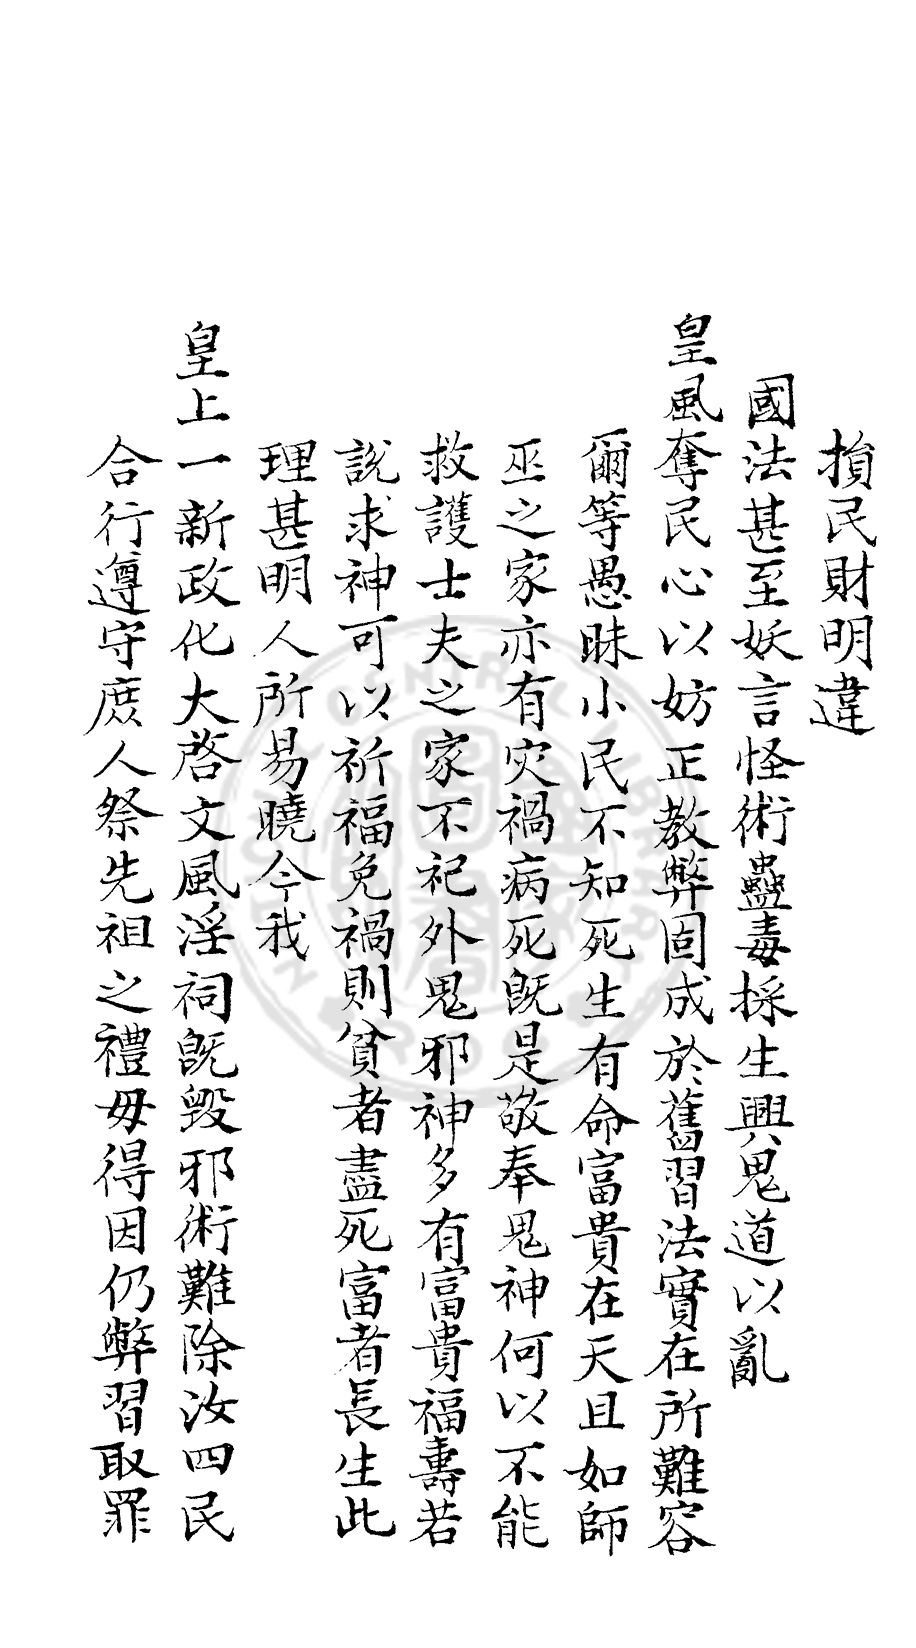 損民財明違
國法甚至妖言怪術蠱毒採生興鬼道以亂
皇風奪民心以妨正教弊固成於舊習法實在所難容
爾等愚昧小民不知死生有命富貴在天且如師
巫之家亦有灾禍病死旣是敬奉鬼神何以不能
救護士夫之家不祀外鬼邪神多有富貴福壽若
說求神可以祈福免禍則貧者盡死富者長生此
理甚明人所易曉今我
皇上一新政化大啓文風淫祠旣毀邪術難除汝四民
合行遵守庶人祭先祖之禮毋得因仍弊習取罪